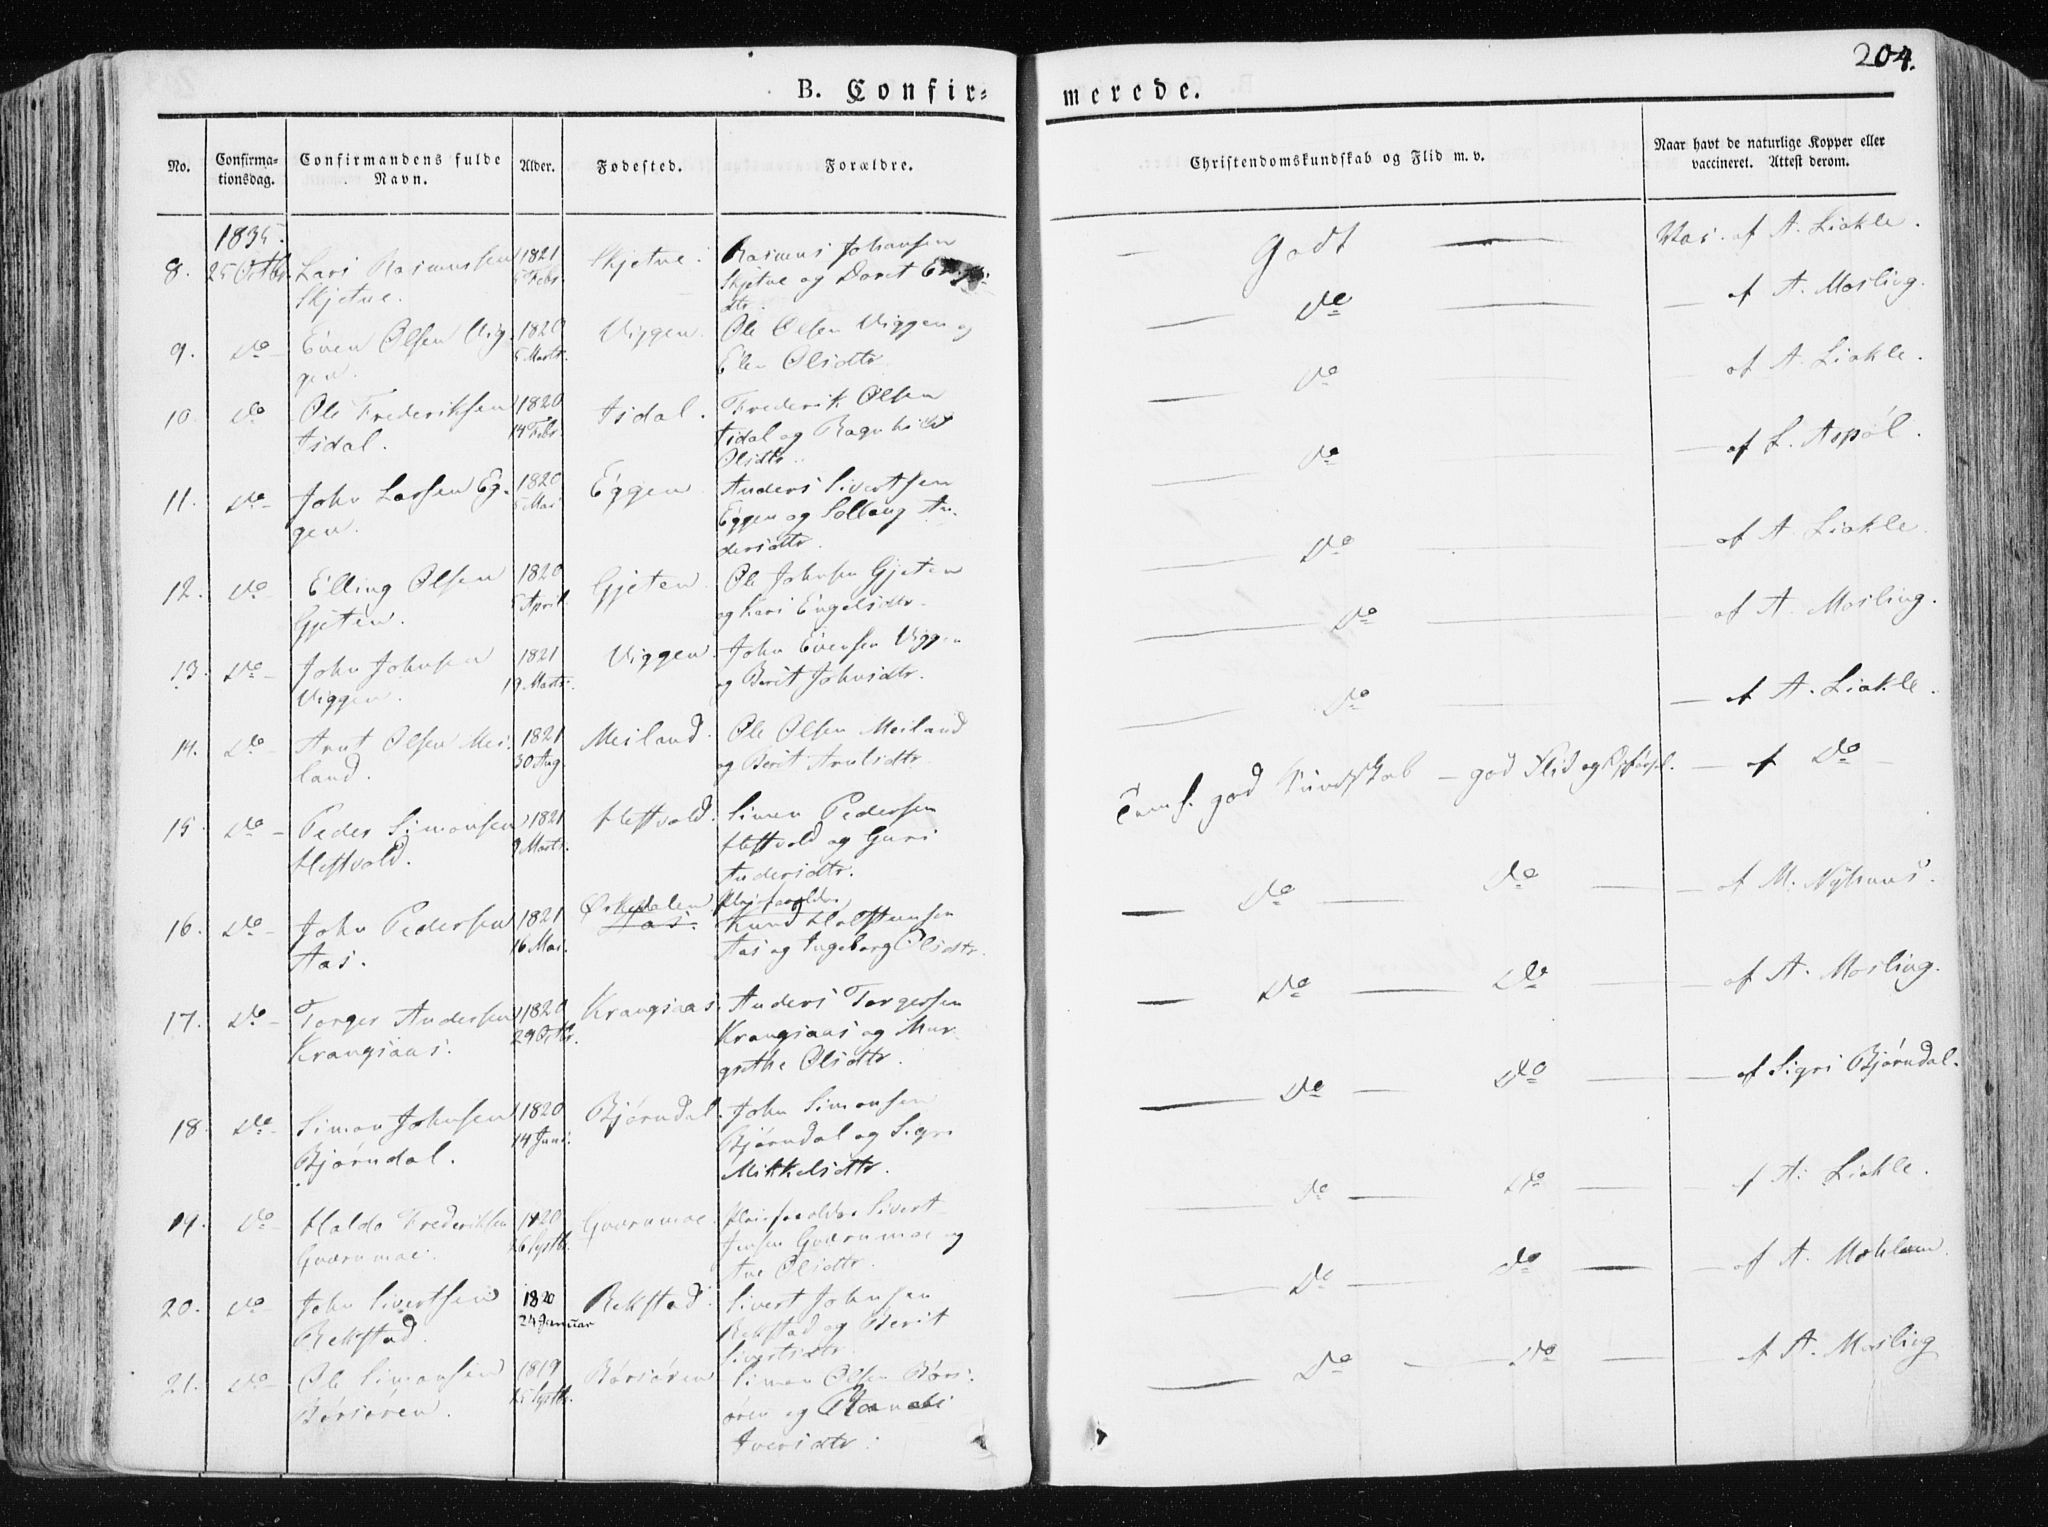 204.
B. Confir= merede.
No.
Confirma-
tionsdag.
Confirmandens fulde
Navn.
Alder.
Fødested.
Forældre.
Christendomskundskab og Flid m. v.
Naar havt de naturlige Kopper eller
vaccineret. Attest derom.
1835.
8. 25 Octbr. Lars Rasmussen 1821 Skjetne. Rasmus Johansen Godt Vac. af A. Liakle.
Skjetne. Febr. Skjetne og Doret
dtr.
9. Do Even Olsen Vig- 1820 Viggen. Ole Olsen Viggen og Do af A. Mosling.
gen. 5 Marts. Elen Olsdtr.
10. Do Ole Frederiksen 1820 Isdal. Frederik Olsen Do af A. Liakle.
Isdal. 14 Febr. Isdal og Ragnhild
Olsdtr.
11. Do John Larsen Eg- 1820 Eggen. Anders Sivertsen Do af L. Aspøl.
gen. 5 Mai Eggen og Solloug An-
dersdtr.
12. Do Elling Olsen 1820 Gjeten. Ole Johnsen Gjeten Do af A. Liakle.
Gjeten. 5 April og Kari Engelsdtr.
13. Do John Johnsen 1821 Viggen. John Evensen Viggen Do af A. Mosling.
Viggen. 19 Marts. og Berit Johnsdtr.
14. Do Arnt Olsen Mei- 1821 Meiland. Ole Olsen Meiland Do af A. Liakle.
land. 30 Aug. og Berit Arntsdtr.
15. Do Peder Simonsen 1821 Heffvold. Simen Pedersen god Kundskab - god Flid og Opførsel. af Do
Heffvold. 9 Marts. Heffvold og Guri
Andersdtr.
16. Do John Pedersen 1821 Ørkedalen Pleiforældre Do Do af M. Nyhuus.
Aas. 16 Mai. Aas. Knud Halstensen
Aas og Ingeborg Olsdtr.
17. Do Torger Andersen 1820 Krangsaas. Anders Torgersen Do Do af A. Mosling.
Krangsaas. 29 Octbr. Krangsaas og Mar-
grethe Olsdtr.
18. Do Simon Johnsen 1820 Bjørndal. John Simonsen Do Do af Sigri Bjørndal.
Bjørndal. 14 Juni. Bjørndal og Sigri
Mikkelsdtr.
19. Do Haldo Frederiksen 1820 Gværnmoe. Pleieforældre Sivert Do Do af A. Liakle.
Gværnmoe. Septbr. Jensen Gværnmoe og
Ane Olsdtr.
20. Do John Sivertsen 1820 Rekstad. Sivert Johnsen Do Do af A.
Rekstad. 24 Januar Rekstad og Berit
Sivertsdtr.
21. Do Ole Simonsen 1819 Børsøren Simon Olsen Børs- Do Do af A. Mosling
Børsøren. Septbr. øren og
Iversdtr.